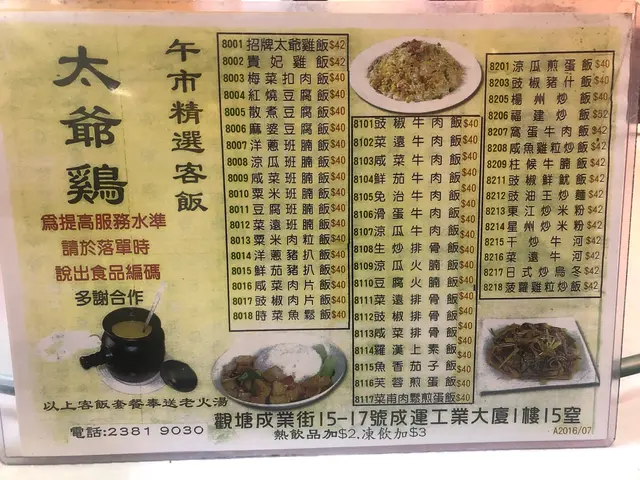 太爺鷄
午市精選客飯
為提高服務水準
請於落單時
說出食品編碼
多謝合作
以上客飯套餐奉送老火湯
電話:2381 9030
8001 招牌太爺雞飯 $42
8002 貴妃雞飯 $42
8003 梅菜扣肉飯 $40
8004 紅燒豆腐飯 $40
8005 散煮豆腐飯 $40
8006 麻婆豆腐飯 $40
8007 洋蔥班腩飯 $40
8008 涼瓜班腩飯 $40
8009 咸菜班腩飯 $40
8010 粟米班腩飯 $40
8011 豆腐班腩飯 $40
8012 菜遠班腩飯 $40
8013 粟米肉粒飯 $40
8014 洋蔥豬扒飯 $40
8015 鮮茄豬扒飯 $40
8016 咸菜肉片飯 $40
8017 豉椒肉片飯 $40
8018 時菜魚鬆飯 $40
8101 豉椒牛肉飯 $40
8102 菜遠牛肉飯 $40
8103 咸菜牛肉飯 $40
8104 鮮茄牛肉飯 $40
8105 免治牛肉飯 $40
8106 滑蛋牛肉飯 $40
8107 涼瓜牛肉飯 $40
8108 生炒排骨飯 $40
8109 涼瓜火腩飯 $40
8110 豆腐火腩飯 $40
8111 菜遠排骨飯 $40
8112 豉椒排骨飯 $40
8113 咸菜排骨飯 $40
8114 羅漢上素飯 $40
8115 魚香茄子飯 $40
8116 芙蓉煎蛋飯 $40
8117 菜甫肉鬆煎蛋飯 $40
8201 涼瓜煎蛋飯 $40
8203 豉椒豬什飯 $40
8205 楊州炒飯 $40
8206 福建炒飯 $52
8207 窩蛋牛肉飯 $42
8208 咸魚雞粒炒飯 $42
8209 柱候牛腩飯 $42
8211 豉椒鮮魷飯 $42
8212 豉油王炒麵 $42
8213 東江炒米粉 $42
8214 星州炒米粉 $42
8215 干炒牛河 $42
8216 菜遠牛河 $42
8217 日式炒烏冬 $42
8218 菠蘿雞粒炒飯 $42
觀塘成業街15-17號成運工業大廈1樓15室
熱飲品加$2,凍飲加$3
A2016/07